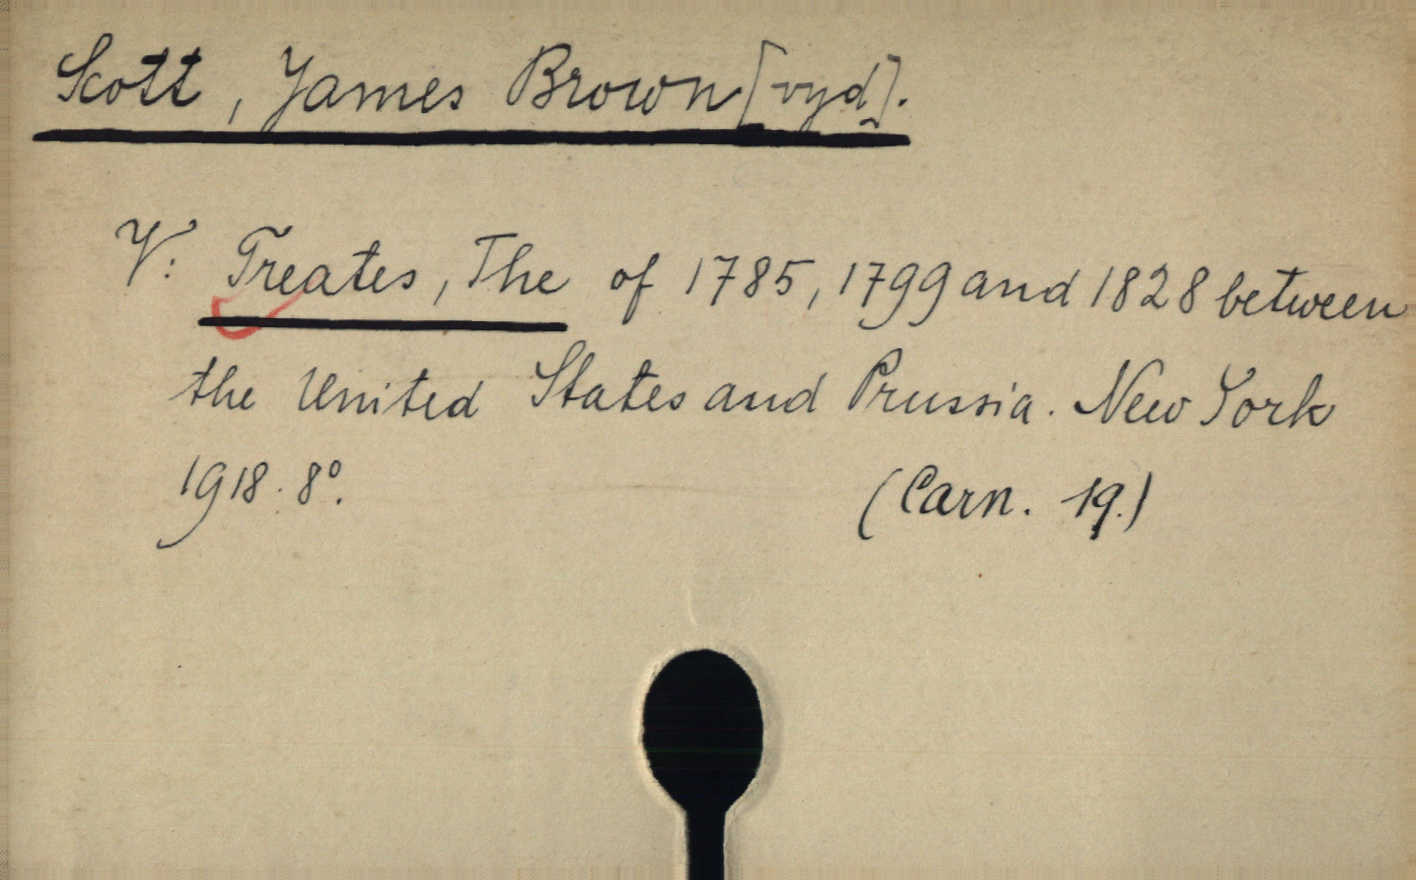 Scott, James Brown [vyd].
V: Treates, The of 1785, 1799 and 1828 between
the United States and Prussia. New York
1918. 8°. (Carn. 19.)